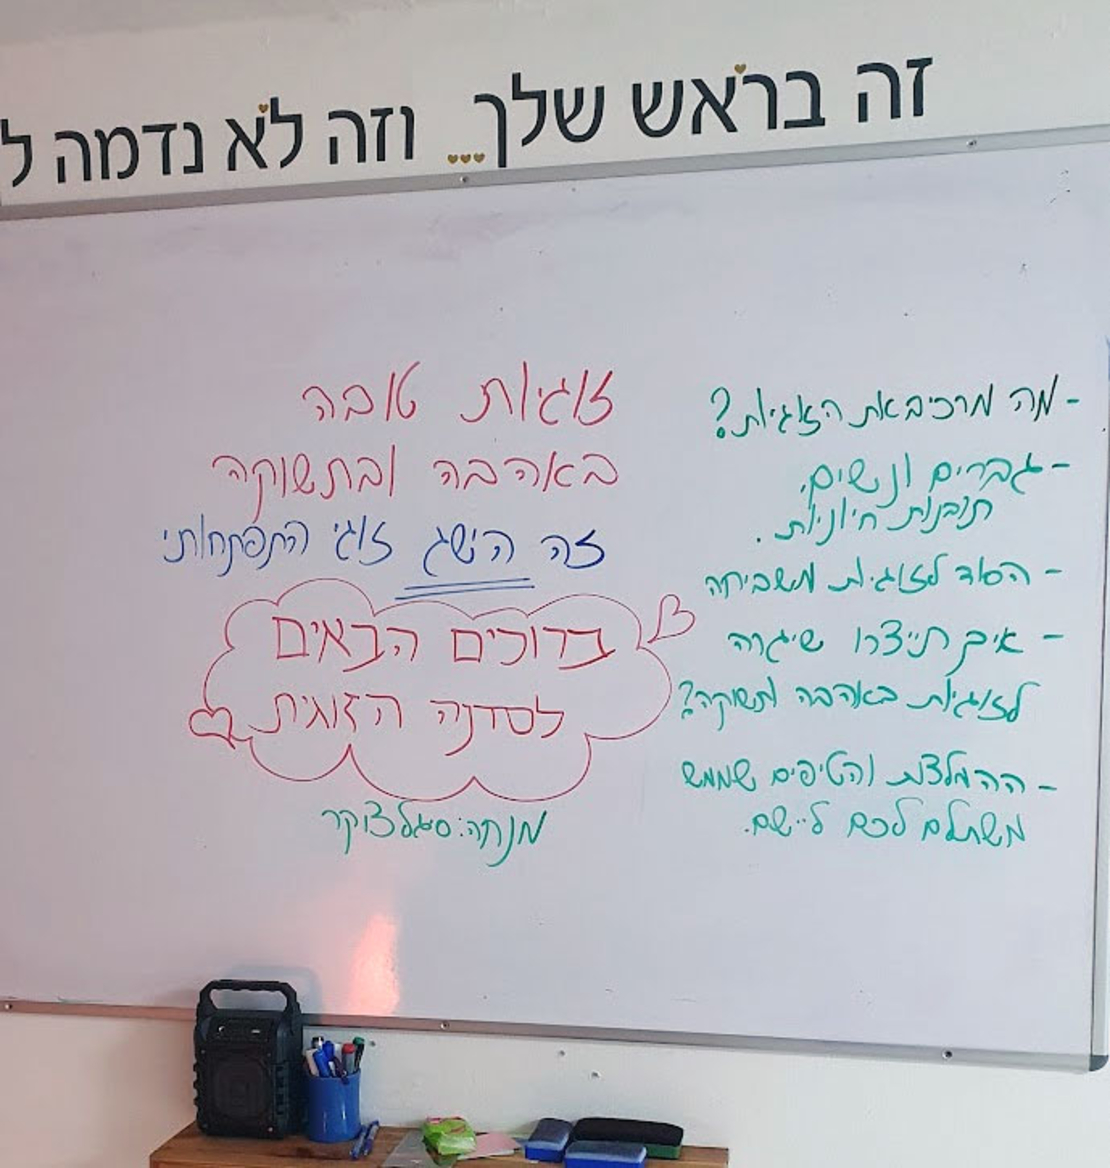 זה בראש שלך... וזה לא נדמה ל
זוגיות טובה
באהבה ובתשוקה
זה הישג זוגי התפתחותי
ברוכים הבאים
לסדנה הזוגית
מנחה: סיגל צוקר
- מה מרכיב את הזוגיות?
- גברים ונשים,
תובנות חיוניות.
- הסוד לזוגיות משביחה
- איך תייצרו שיגרה
לזוגיות באהבה ותשוקה?
- ההמלצות והטיפים שממש
משתלם לכם ליישם.